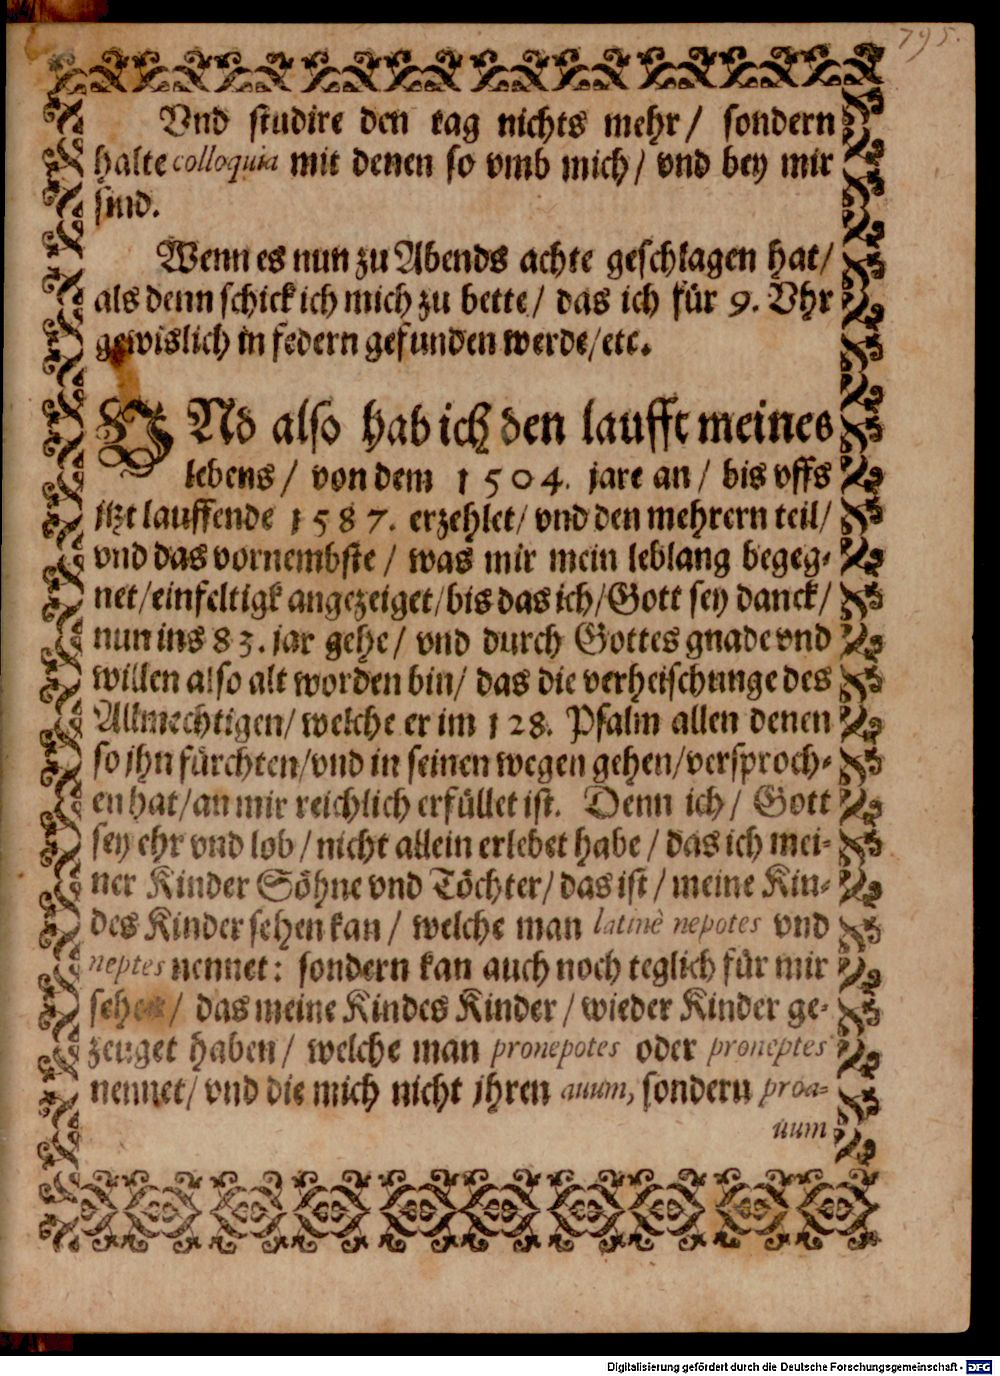 795.
Vnd studire den tag nichts mehr/ sondern
halte colloquia mit denen so vmb mich/ vnd bey mir
sind.
Wenn es nun zu Abends achte geschlagen hat/
als denn schick ich mich zu bette/ das ich für 9. Vhr
gewislich in federn gefunden werde/etc.
VNd also hab ich den laufft meines
lebens/ von dem 1504. jare an/ bis vffs
itzt lauffende 1587. erzehlet/ vnd den mehrern teil/
vnd das vornembste/ was mir mein leblang begeg-
net/einfeltigk angezeiget/bis das ich/Gott sey danck/
nun ins 83. jar gehe/ vnd durch Gottes gnade vnd
willen also alt worden bin/ das die verheischunge des
Allmechtigen/ welche er im 128. Psalm allen denen
so ihn fürchten/vnd in seinen wegen gehen/versproch-
en hat/an mir reichlich erfüllet ist. Denn ich/ Gott
sey ehr vnd lob/nicht allein erlebet habe/das ich mei-
ner Kinder Söhne vnd Töchter/das ist/meine Kin-
des Kinder sehen kan/ welche man latinè nepotes vnd
neptes nennet: sondern kan auch noch teglich für mir
sehen/ das meine Kindes Kinder/wieder Kinder ge-
zeuget haben/ welche man pronepotes oder proneptes
nennet/ vnd die mich nicht jhren auum, sondern proa-
uum
Digitalisierung gefördert durch die Deutsche Forschungsgemeinschaft - DFG